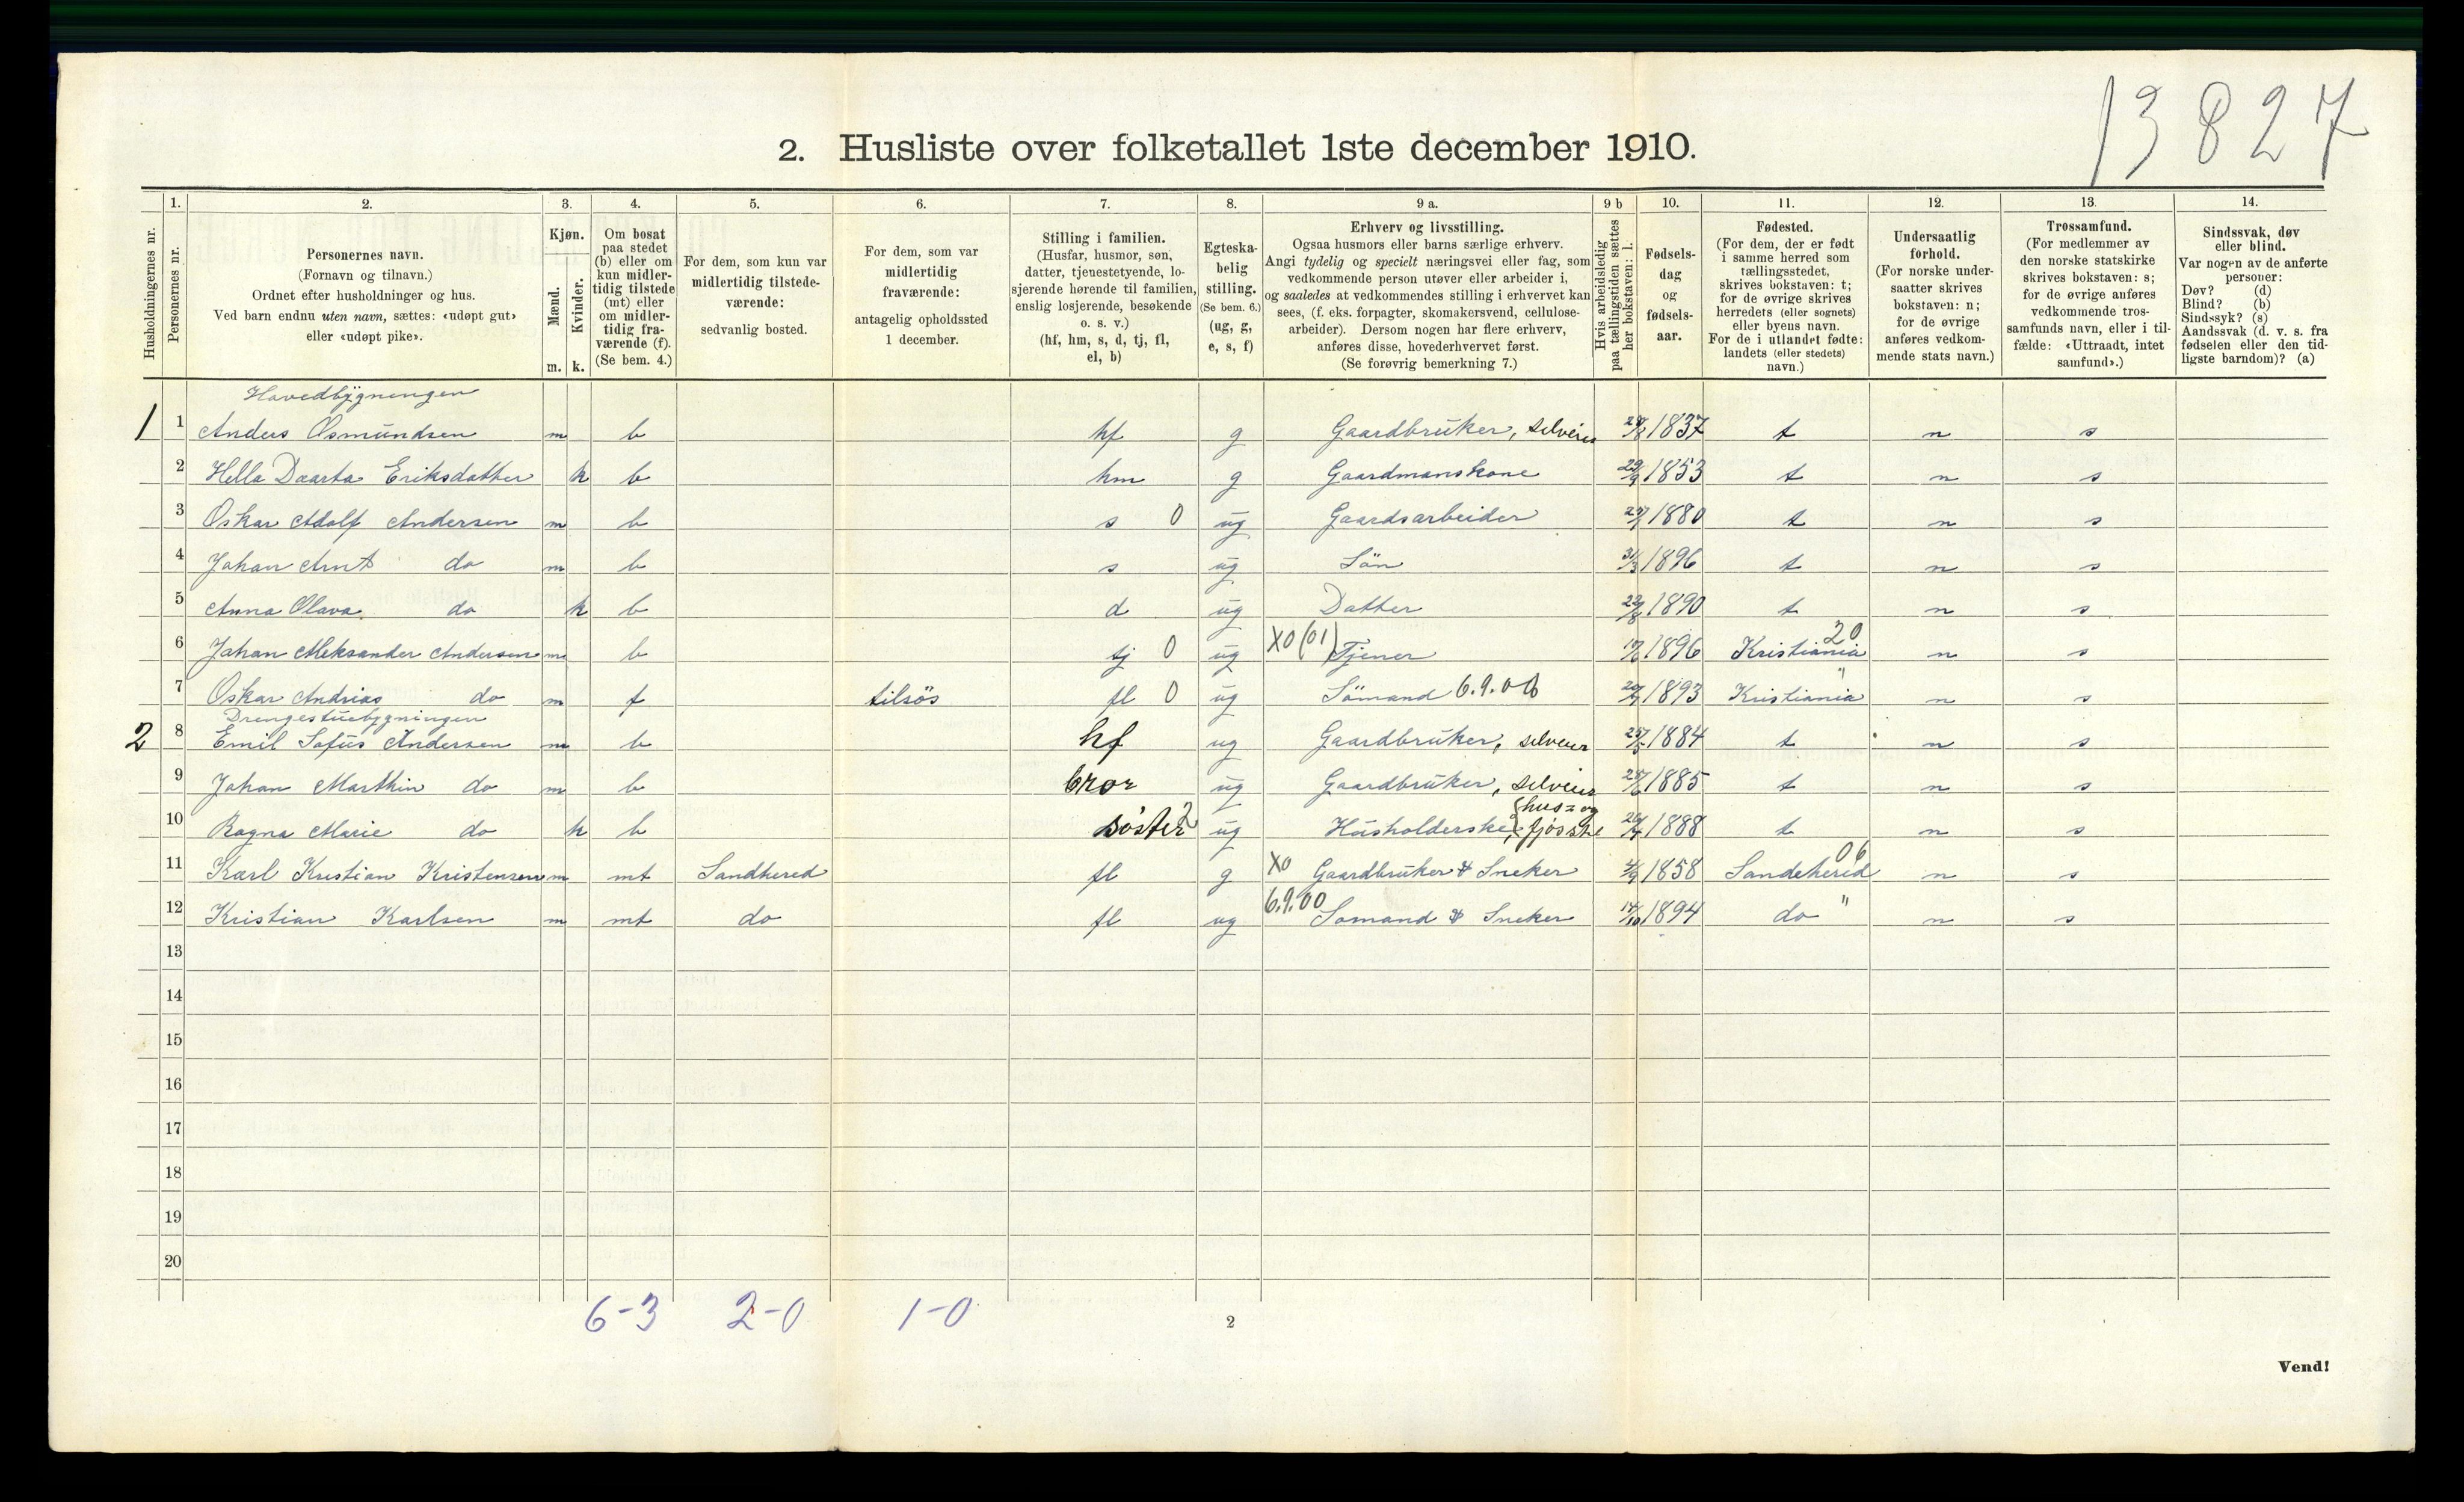 13827
2. Husliste over folketallet 1ste december 1910.
1. 2. 3. 4. 5. 6. 7. 8. 9 a. 9 b 10. 11. 12. 13. 14.
Husholdningernes nr.
Personernes nr.
Personernes navn.
(Fornavn og tilnavn.)
Ordnet efter husholdninger og hus.
Ved barn endnu uten navn, sættes: «udøpt gut»
eller «udøpt pike».
Kjøn.
Mænd.
Kvinder.
m. k.
Om bosat
paa stedet
(b) eller om
kun midler-
tidig tilstede
(mt) eller
om midler-
tidig fra-
værende (f).
(Se bem. 4.)
For dem, som kun var
midlertidig tilstede-
værende:
sedvanlig bosted.
For dem, som var
midlertidig
fraværende:
antagelig opholdssted
1 december.
Stilling i familien.
(Husfar, husmor, søn,
datter, tjenestetyende, lo-
sjerende hørende til familien,
enslig losjerende, besøkende
o. s. v.)
(hf, hm, s, d, tj, fl,
el, b)
Egteska-
belig
stilling.
(Se bem. 6.)
(ug, g,
e, s, f)
Erhverv og livsstilling.
Ogsaa husmors eller barns særlige erhverv.
Angi tydelig og specielt næringsvei eller fag, som
vedkommende person utøver eller arbeider i,
og saaledes at vedkommendes stilling i erhvervet kan
sees, (f. eks. forpagter, skomakersvend, cellulose-
arbeider). Dersom nogen har flere erhverv,
anføres disse, hovederhvervet først.
(Se forøvrig bemerkning 7.)
Hvis arbeidsledig
paa tællingstiden sættes
her bokstaven: l.
Fødsels-
dag
og
fødsels-
aar.
Fødested.
(For dem, der er født
i samme herred som
tællingsstedet,
skrives bokstaven: t;
for de øvrige skrives
herredets (eller sognets)
eller byens navn.
For de i utlandet fødte:
landets (eller stedets)
navn.)
Undersaatlig
forhold.
(For norske under-
saatter skrives
bokstaven: n;
for de øvrige
anføres vedkom-
mende stats navn.)
Trossamfund.
(For medlemmer av
den norske statskirke
skrives bokstaven: s;
for de øvrige anføres
vedkommende tros-
samfunds navn, eller i til-
fælde: «Uttraadt, intet
samfund».)
Sindssvak, døv
eller blind.
Var nogen av de anførte
personer:
Døv? (d)
Blind? (b)
Sindssyk? (s)
Aandssvak (d. v. s. fra
fødselen eller den tid-
ligste barndom)? (a)
Hovedbygningen
1 1 Anders Osmundsen m b hf g Gaardbruker, selveier 1837 t n s
2 Hella Daarta Eriksdatter k b hm g Gaardmanskone 29/9 1853 t n s
3 Oskar Adolf Andersen m b s 0 ug Gaardsarbeider 1880 t n s
4 Johan Arnt do m b s ug Sön 31/3 1896 t n s
5 Anna Olava do k b d ug Datter 22/8 1890 t n s
20
6 Johan Aleksander Andersen m b tj 0 ug X0 (01) Tjener 1896 Kristiania n s
7 Oskar Andrias do m f tilsös fl 0 ug Sömand 6.9.00 1893 Kristiania " n s
Drengestuebygningen
2 8 Emil Sofus Andersen m b hf ug Gaardbruker, selveier 1884 t n s
9 Johan Marthin do m b bror ug Gaardbruker, selveier 1885 t n s
hus= og
10 Ragna Marie do k b søster ug Husholderske, fjøsste 1888 t n s
06
11 Karl Kristian Kristensen m mt Sandhered fl g X0 Gaardbruker & Sneker 1858 Sandehered n s
6.9.00
12 Kristian Karlsen m mt do fl ug Somand & Sneker 14/10 1894 do " n s
13
14
15
16
17
18
19
20
6-3 2-0 1-0
2
Vend!